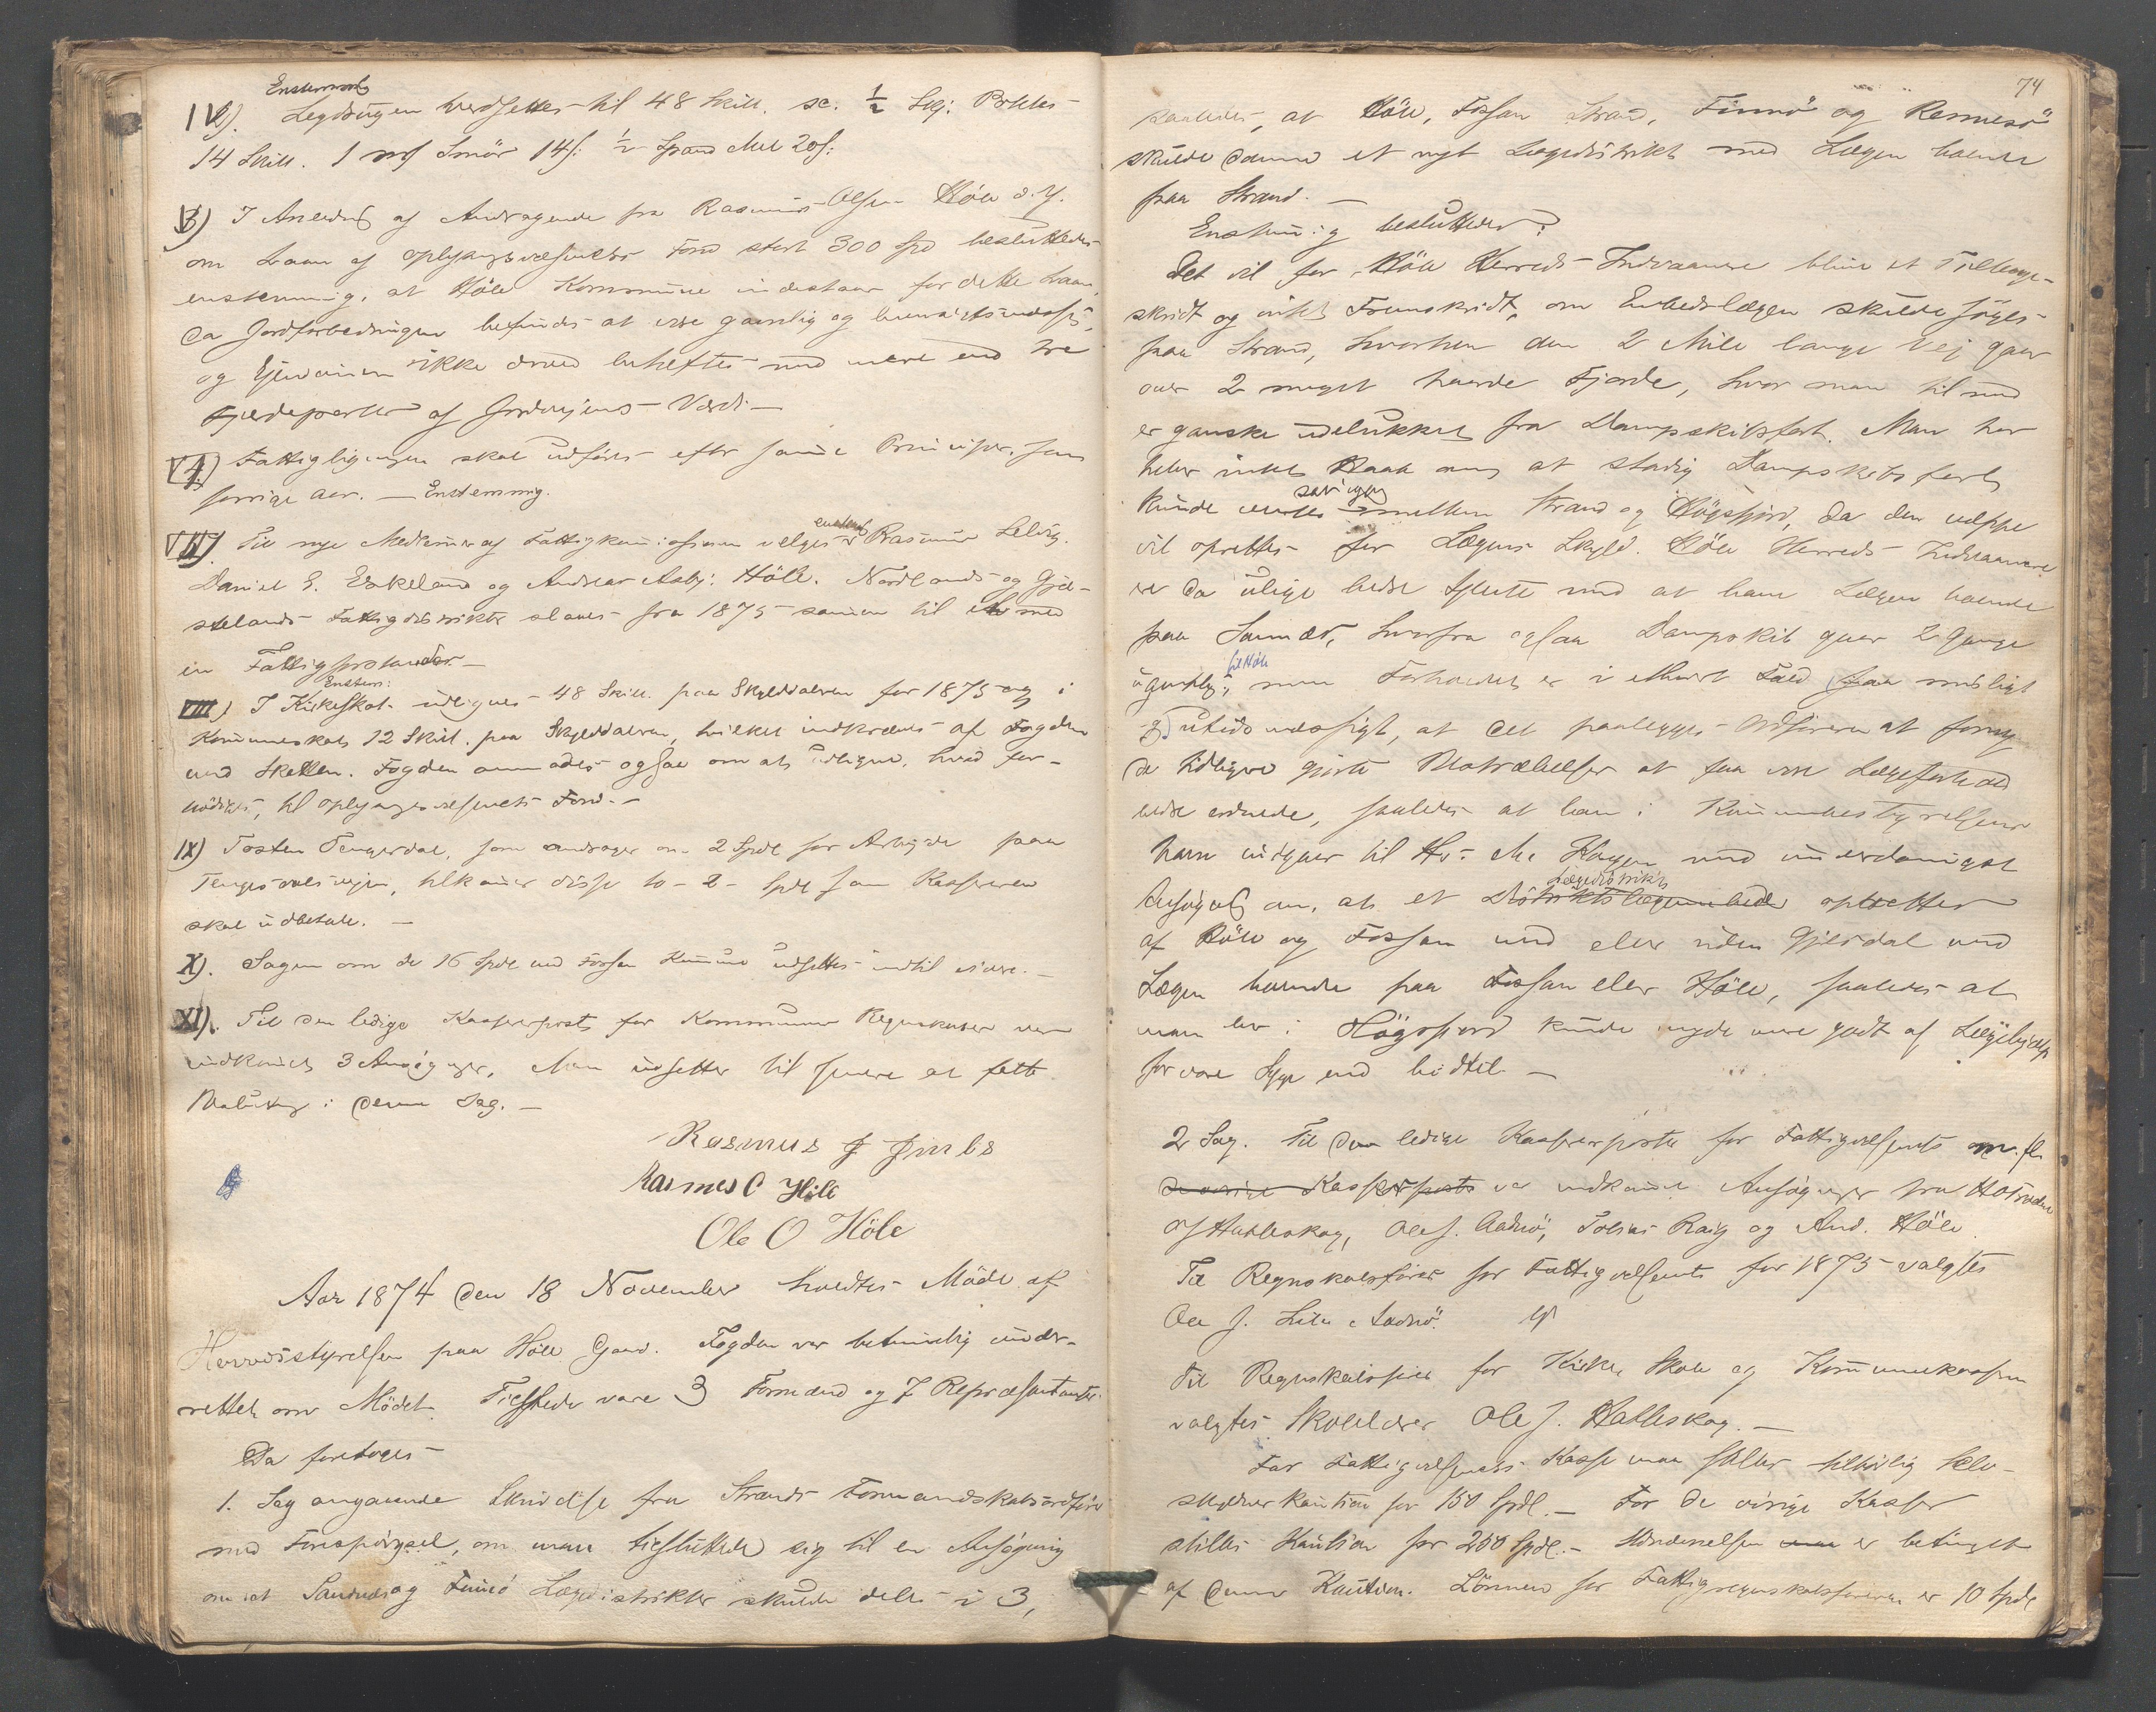 Enstemmet
IV). Legdsugen verdsettes til 48 Skill. sc. ½ Skj: Poteter
14 Skill. 1 m Smör 14 s: ½ Spand Mel 20 s:
V) I Anledng af Andragende fra Rasmus Olsen Höle d. y.
om Laan af Oplysningsvæsenets Fond stort 300 Spd besluttedes
enstemmig, at Höle Kommune indestaar for dette Laan,
da Jordforbedringen befindes at være gavnlig og hensigtsmæssig,
og Ejendommen ikke derved beheftes med mere end tre
Fjerdeparter af Jordvejens Værdi —
VI) Fattigligningen skal udföres efter samme Principer, som
forrige Aar. — Enstemmig.
VII) Til nye Medlemmer af Fattigkommissionen velges enstem Rasmus Selvig.
Daniel E. Eskeland og Andreas Asbj: Höle. Nordlands og Gjel-
stelands Fattigdistrikter slaaes fra 1875 sammen til et med
en Fattigforstander. —
Enstem:
VIII) I Kirkeskat udlignes 48 Skill. paa Skylddaleren for 1875 og i
Kommuneskat 12 Skill. paa Skylddaleren, hvilket indkræves af Fogden
med Skatten. Fogden anmodes ogsaa om at udligne, hvad for-
nödiges, til Oplysningsvæsenets Fond. —
IX) Tosten Tengesdal, som andrager om 2 Spdl for Arbejde paa
Tengesdalsvejen, tilkommer disse to - 2 - Spdl som Kassereren
skal udbetale. —
X). Sagen om de 16 Spdl med Fossan Kommune udsettes indtil videre. —
XI). Til den ledige Kassererpost for Kommunens Regnskaber var
indkommet 3 Ansögninger. Man udsetter til senere at fatte
Beslutning i denne Sag. —
Rasmus J Jmbs
Rasmus O Höle
Ole O Höle
Aar 1874 den 18 November holdtes Möde af
Herredsstyrelsen paa Höle Gaard. Fogden var betimelig under-
rettet om Mödet. Tilstede vare 3 Formænd og 7 Repræsentanter.
Da foretoges
1. Sag angaaende Skrivelse fra Strands Formandskabsordförer
med Forespörgsel, om man tilsluttede sig til en Ansögning
om at Sandnes og Finnö Lægdistrikter skulde deles i 3,
74
saaledes, at Höle, Fossan Strand, Finnö og Rennesö
skulde danne et nyt Lægedistrikt med Lægen boende
paa Strand. —
Enstemmig besluttedes:
Det vil for Höle Herreds Indvaanere blive et Tilbage-
skridt og intet Fremskridt, om Embedslægen skulde söges
paa Strand, hvorhen den 2 Mile lange Vej gaar
over 2 meget haarde Fjorde, hvor man til med
er ganske udelukket fra Dampskibsfart. Man har
heller intet Haab om, at stadig Dampskibsfart
kunde ventes mellem Strand og Högsfjord, da den neppe
vil oprettes for Lægens Skyld. Höle Herreds Indvaanere
er da ulige bedre tjente med at have Lægen boende
paa Sandnes, hvorfra ogsaa Dampskib gaar 2 Gange
til Höle
ugentlig; men Forholdet er i ethvert Fald saa misligt
og utidsmæssigt, at det paalegges Ordföreren at forny
de tidligere gjorte Bestræbelser at faa vore Lægeforhold
bedre ordnede, saaledes at han i Kommunebestyrelsens
Navn indgaar til Hs. Ma. Kongen med underdanigst
Lægedistrikt
Ansögning om, at et Distriktslægeembede oprettes
af Höle og Fossan med eller uden Gjesdal med
Lægen boende paa Fossan eller Höle, saaledes at
man her i Högsfjord kunde nyde mere godt af Lægehjælp
for vore Syge end hidtil —
2 Sag. Til den ledige Kassererposter for Fattigvæsenets m. fl.
de övrige Kassererposter var indkommet Ansögninger fra
Ole J. Aadnö, Tobias Raig og And. Höle.
Til Regnskabsförer for Fattigvæsenets for 1875 valgtes
Ole J. Lille Aadnö.
Til Regnskabsförer for Kirke, Skole og Kommunekassen
valgtes Skolelærer Ole J. Halleskog. —
For Fattigvæsenets Kasse maa stilles tilbörlig Selv-
skyldnerkaution for 150 Spdl. — For de övrige Kasser
stilles Kaution for 200 Spdl. — er betinget
af denne Kaution. Lönnen for Fattigregnskabsföreren er 10 Spdl